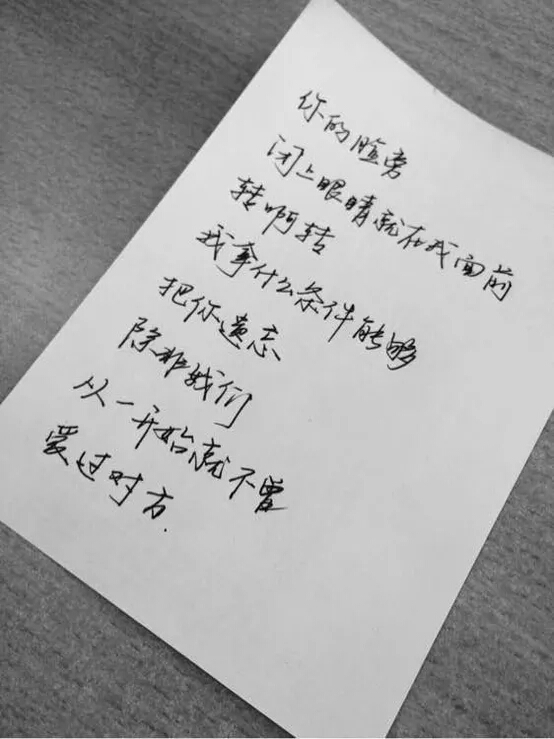 你的脸旁
闭上眼睛就在我面前
转啊转
我拿什么条件能够
把你遗忘
除非我们
从一开始就不曾
爱过对方.